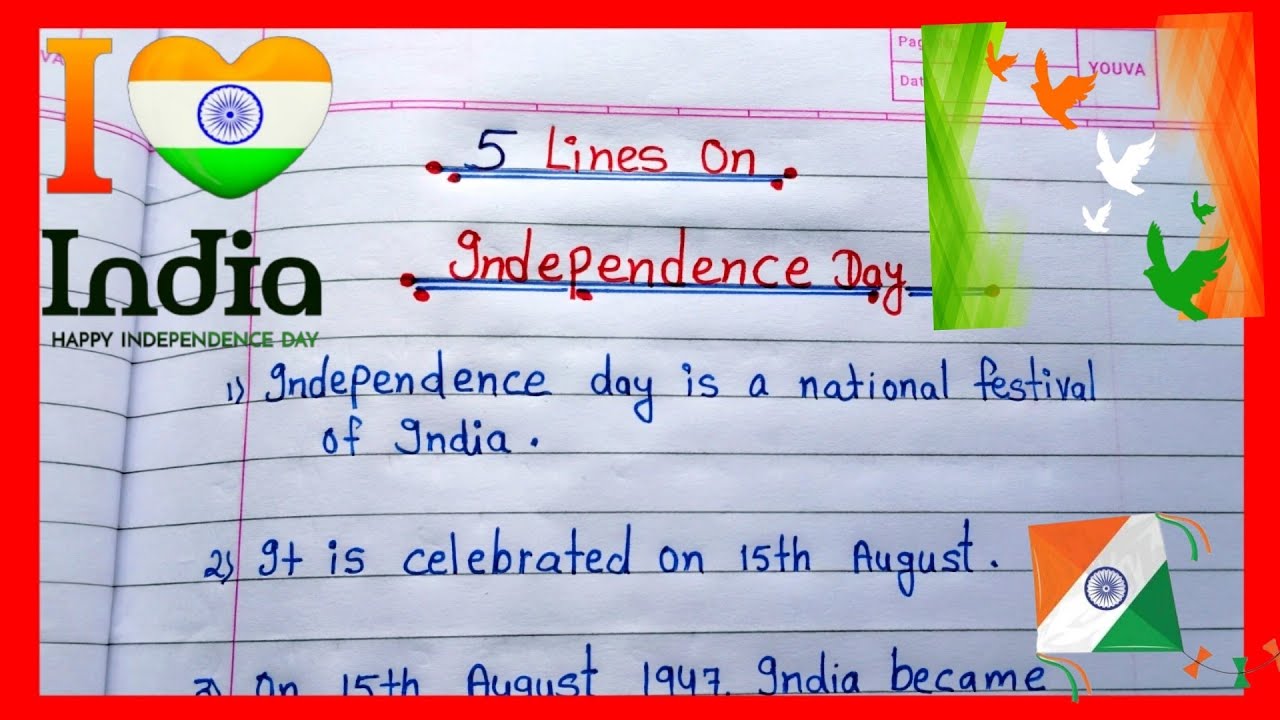 I
India
HAPPY INDEPENDENCE DAY
VA
Pag
Dat
YOUVA
5 Lines On
Independence Day
1) Independence day is a national festival
of India.
2) It is celebrated on 15th August.
3) On 15th August 1947, India became